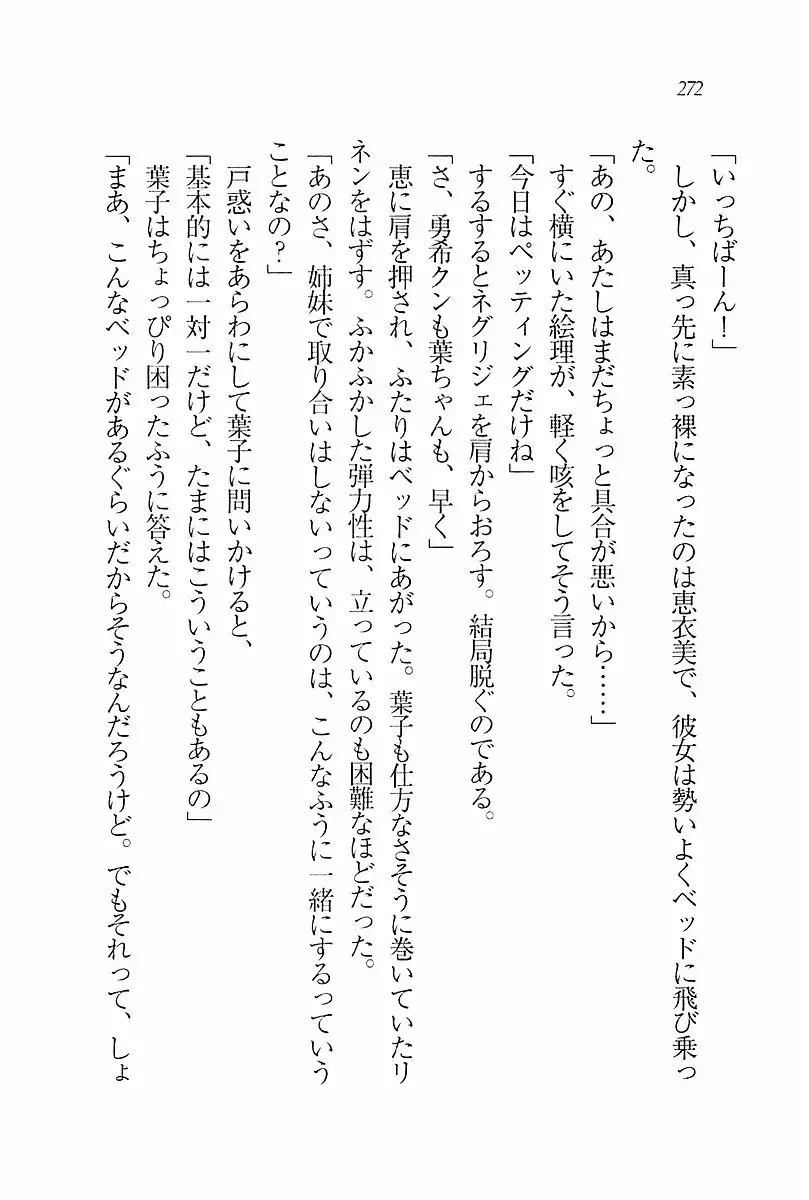 272
「いっちばーん！」
しかし、真っ先に素っ裸になったのは恵衣美で、彼女は勢いよくベッドに飛び乗っ
た。
「あの、あたしはまだちょっと具合が悪いから……」
すぐ横にいた絵理が、軽く咳をしてそう言った。
「今日はペッティングだけね」
するするとネグリジェを肩からおろす。結局脱ぐのである。
「さ、勇希クンも葉ちゃんも、早く」
恵に肩を押され、ふたりはベッドにあがった。葉子も仕方なさそうに巻いていたリ
ネンをはずす。ふかふかした弾力性は、立っているのも困難なほどだった。
「あのさ、姉妹で取り合いはしないっていうのは、こんなふうに一緒にするっていう
ことなの？」
戸惑いをあらわにして葉子に問いかけると、
「基本的には一対一だけど、たまにはこういうこともあるの」
葉子はちょっぴり困ったふうに答えた。
「まあ、こんなベッドがあるぐらいだからそうなんだろうけど。でもそれって、しょ